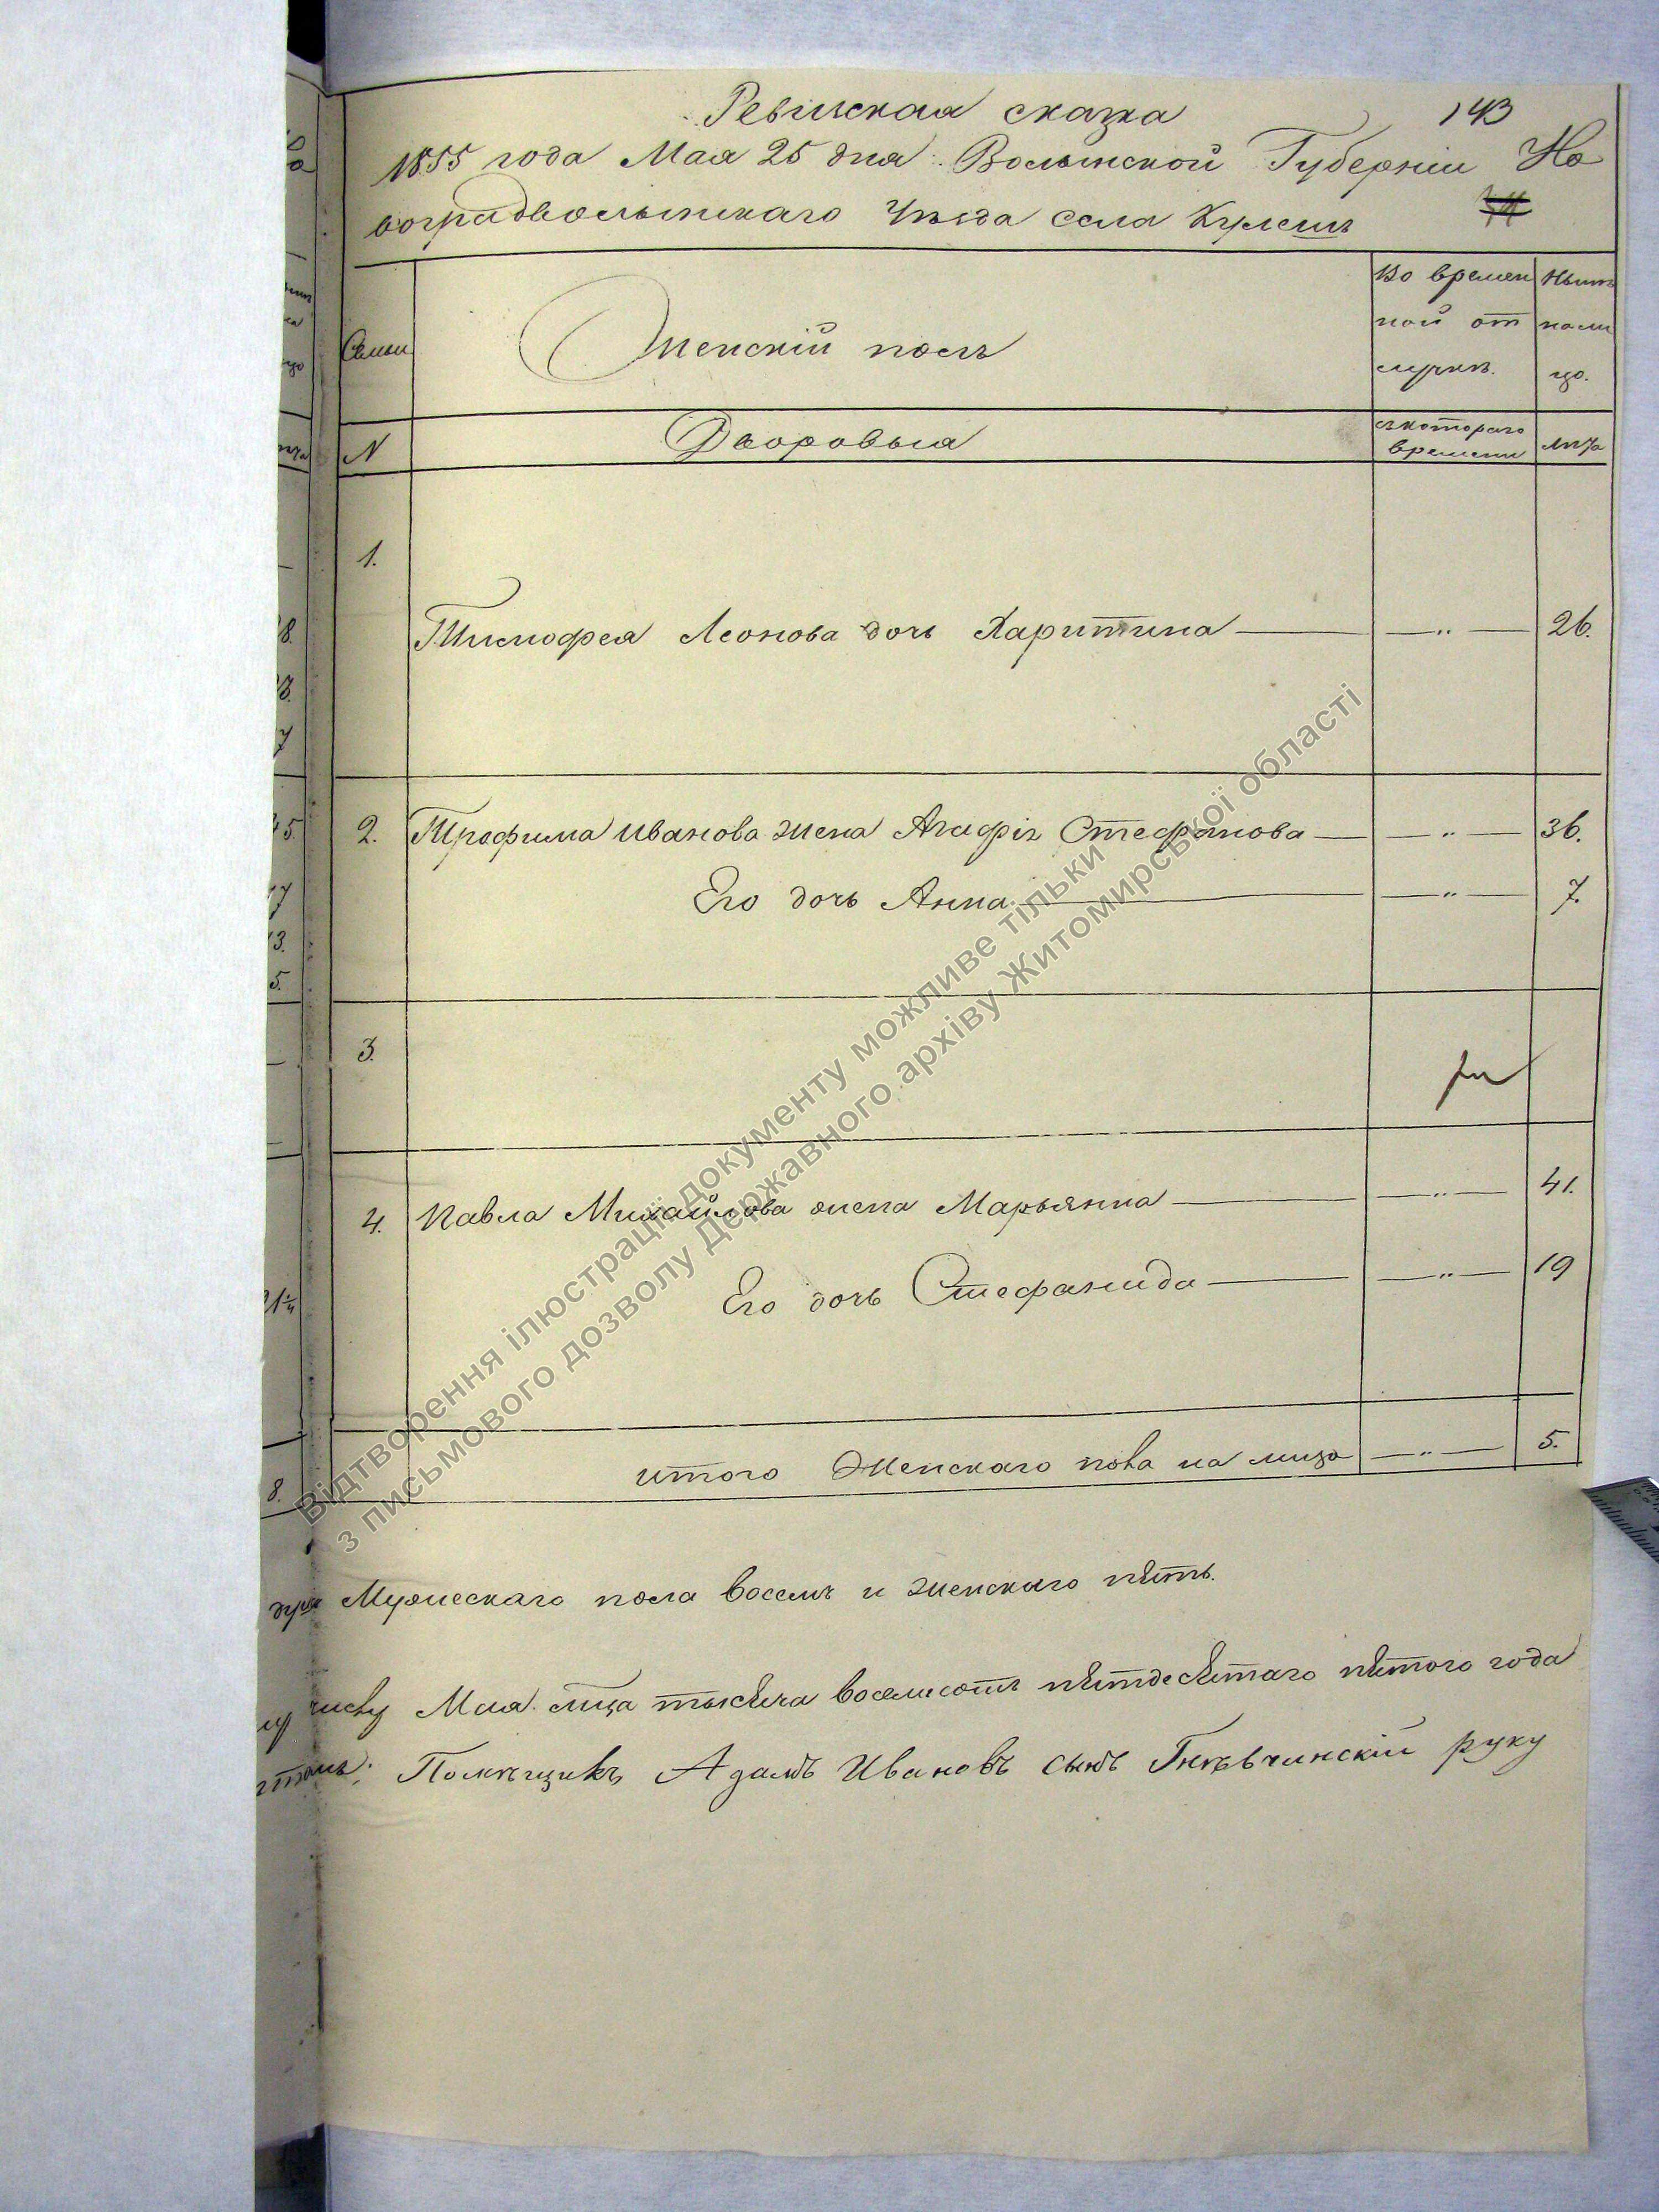 Ревизская сказка 143
1855 года Мая 25 дня Волынской Губерніи Но
воградволынскаго Уѣзда села Кулешъ
Семьи
Женскій полъ
Во времен
ной от
лучкѣ.
Нынѣ
нали
цо.
N
Дворовыя
съ котораго
времени
лѣта
1.
Тимофея Леонова дочь Харитина — " — 26.
2. Трофима Иванова жена Агафія Стефанова — " — 36.
Его дочь Анна — " — 7.
3.
4. Павла Михайлова жена Марьянна — " — 41.
Его дочь Стефанида — " — 19
итого Женскаго пола на лицо — " — 5.
Мужескаго пола восемъ и женскаго пять.
числу Мая м̃ца тысяча восемсотъ пятдесятаго пятого года
Помѣщикъ Адамъ Ивановъ сынъ Гнѣвчинскій руку
Відтворення ілюстрації документу можливе тільки
з письмового дозволу Державного архіву Житомирської області